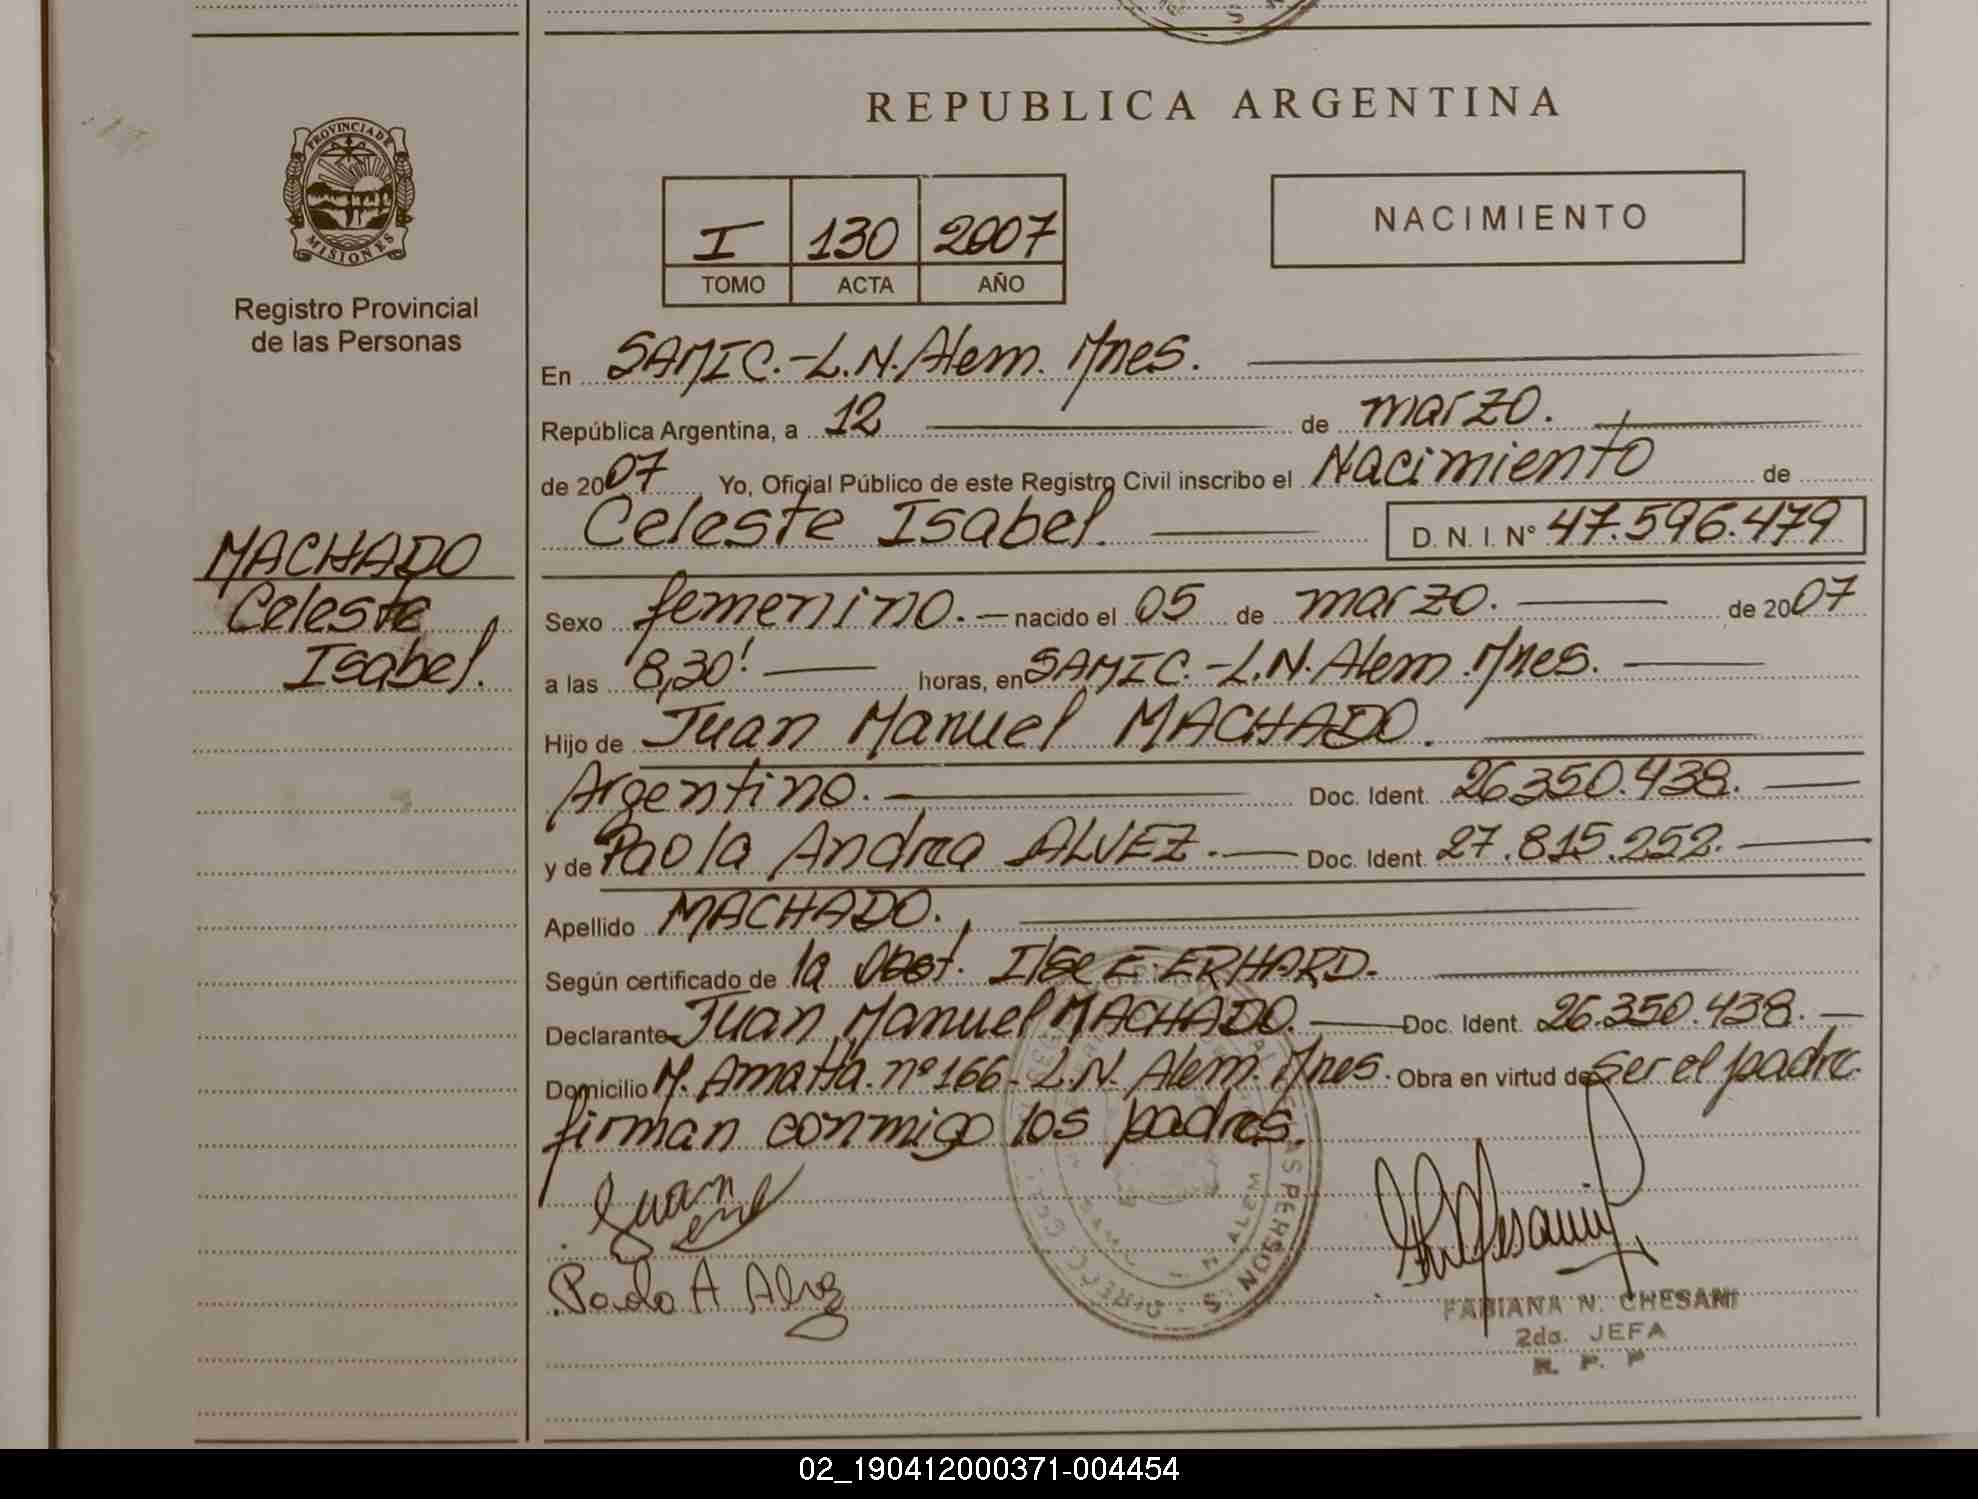 REPUBLICA ARGENTINA
PROVINCIA DE
MISIONES
Registro Provincial
de las Personas
I 130 2007
TOMO ACTA AÑO
NACIMIENTO
En SAMIC.-L.N.Alem. Mnes.
República Argentina, a 12 de marzo.
de 2007 Yo, Oficial Público de este Registro Civil inscribo el Nacimiento de
Celeste Isabel. D. N. I. N° 47.596.479
MACHADO
Celeste
Isabel.
Sexo femenino. nacido el 05 de marzo. de 2007
a las 8,30' horas, en SAMIC.-L.N.Alem.Mnes.
Hijo de Juan Manuel MACHADO.
Argentino. Doc. Ident. 26.350.438.
y de Paola Andrea ALVEZ. Doc. Ident. 27.815.252.
Apellido MACHADO.
Según certificado de la Obst. Ilse E. ERHARD.
Declarante Juan Manuel MACHADO. Doc. Ident. 26.350.438.
Domicilio M. Amatta. nº 166- L.N. Alem. Mnes. Obra en virtud de ser el padre.
firman conmigo los padres.
Juan
Paola A Alvez
FABIANA N. CHESANI
2da. JEFA
R. P. P
02_190412000371-004454